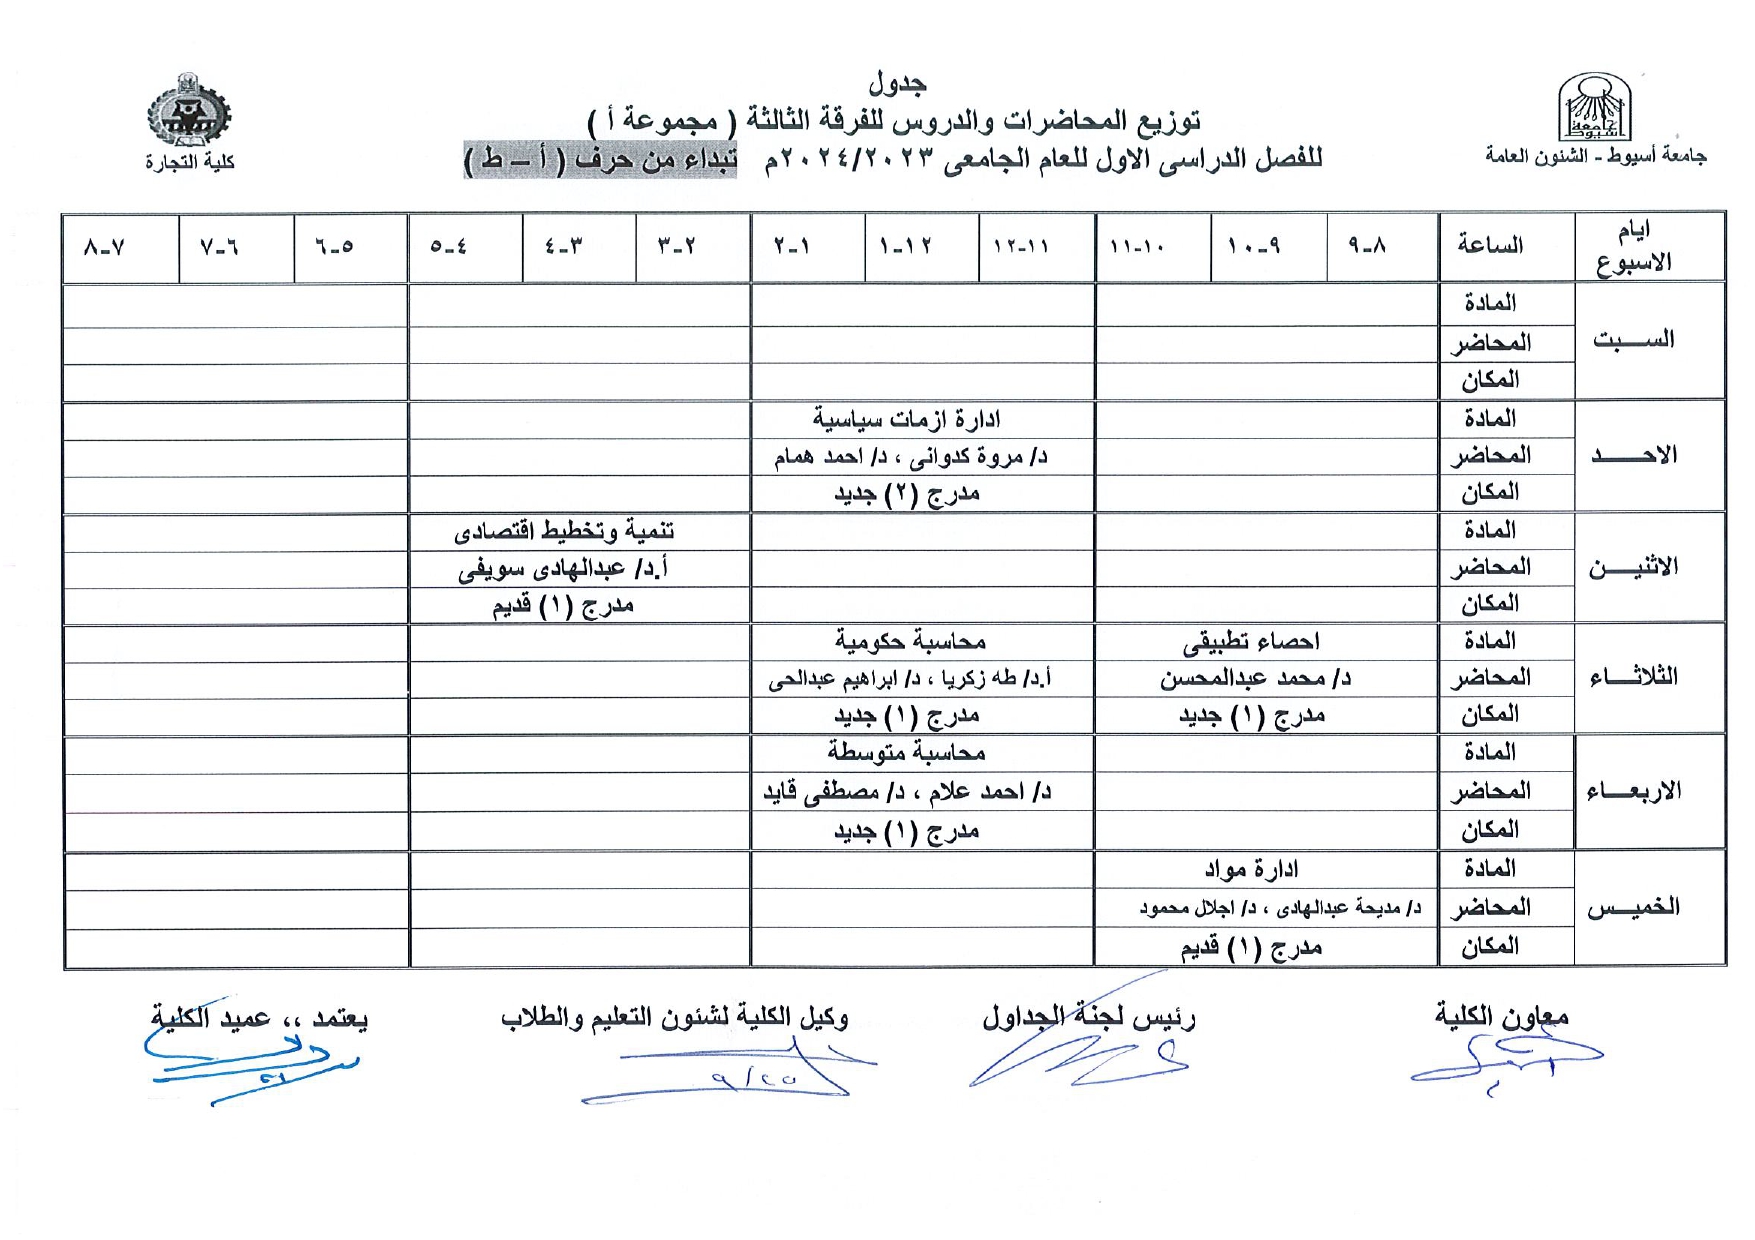 جدول
توزيع المحاضرات والدروس للفرقة الثالثة ( مجموعة أ )
للفصل الدراسى الاول للعام الجامعى ٢٠٢٤/٢٠٢٣م تبداء من حرف ( أ – ط )
جامعة أسيوط
جامعة أسيوط - الشئون العامة
كلية التجارة
ايام الاسبوع الساعة ٨-٩ ٩-١٠ ١٠-١١ ١١-١٢ ١٢-١ ١-٢ ٢-٣ ٣-٤ ٤-٥ ٥-٦ ٦-٧ ٧-٨
السـبت
المادة
المحاضر
المكان
الاحــد
المادة ادارة ازمات سياسية
المحاضر د/ مروة كدوانى ، د/ احمد همام
المكان مدرج (٢) جديد
الاثنيـن
المادة تنمية وتخطيط اقتصادى
المحاضر أ.د/ عبدالهادى سويفى
المكان مدرج (١) قديم
الثلاثـاء
المادة احصاء تطبيقى محاسبة حكومية
المحاضر د/ محمد عبدالمحسن أ.د/ طه زكريا ، د/ ابراهيم عبدالحى
المكان مدرج (١) جديد مدرج (١) جديد
الاربعـاء
المادة محاسبة متوسطة
المحاضر د/ احمد علام ، د/ مصطفى قايد
المكان مدرج (١) جديد
الخميـس
المادة ادارة مواد
المحاضر د/ مديحة عبدالهادى ، د/ اجلال محمود
المكان مدرج (١) قديم
معاون الكلية رئيس لجنة الجداول وكيل الكلية لشئون التعليم والطلاب يعتمد ،، عميد الكلية
٩/٢٥